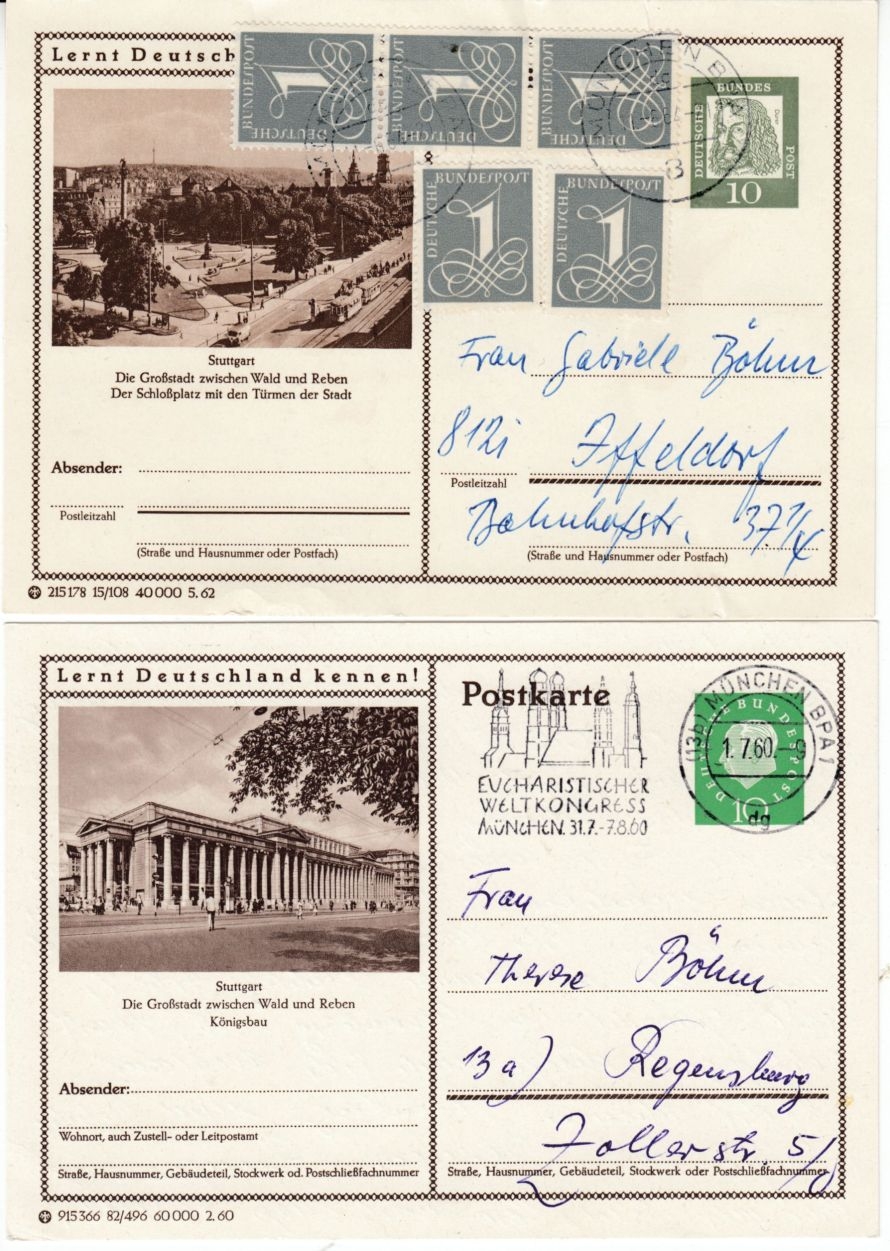 Lernt Deutsch
DEUTSCHE BUNDESPOST 1
DEUTSCHE BUNDESPOST 1
DEUTSCHE BUNDESPOST 1
MÜNCHEN B
8
DEUTSCHE BUNDES POST
Dürer
10
DEUTSCHE BUNDESPOST 1
DEUTSCHE BUNDESPOST 1
Stuttgart
Die Großstadt zwischen Wald und Reben
Der Schloßplatz mit den Türmen der Stadt
Frau Gabriele Böhm
812i Iffeldorf
Absender:
Postleitzahl
Bahnhofstr. 37
Postleitzahl
(Straße und Hausnummer oder Postfach)
(Straße und Hausnummer oder Postfach)
215178 15/108 40000 5.62
Lernt Deutschland kennen!
Postkarte
EUCHARISTISCHER
WELTKONGRESS
MÜNCHEN. 31.7.-7.8.60
(13b) MÜNCHEN BPA 1
1.7.60.-9
dg
DEUTSCHE BUNDESPOST
10
Stuttgart
Die Großstadt zwischen Wald und Reben
Königsbau
Frau
Therese Böhm
13a) Regensburg
Zollerstr. 5/
Absender:
Wohnort, auch Zustell- oder Leitpostamt
Straße, Hausnummer, Gebäudeteil, Stockwerk od. Postschließfachnummer
Straße, Hausnummer, Gebäudeteil, Stockwerk oder Postschließfachnummer
915366 82/496 60000 2.60